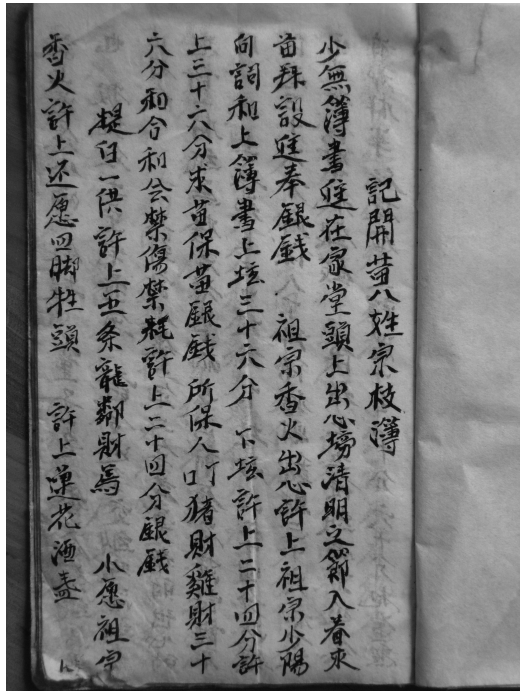 記開黄八姓宗枝簿
少無簿書進在家堂頭上出心塝清明之節入春來
苗拜設進奉銀錢 祖宗香火出心許上祖宗少陽
向詞和上簿書上坛三十六分 下坛許上二十四分許
上三十六分求苗保苗銀錢 所保人丁猪財雞財三十
六分和合和会禁傷禁耗許上二十四分銀錢
提白一供許上五条龍鄰財馬 小愿祖宗
香火許上还愿四脚牲頭 許上蓮花酒盏